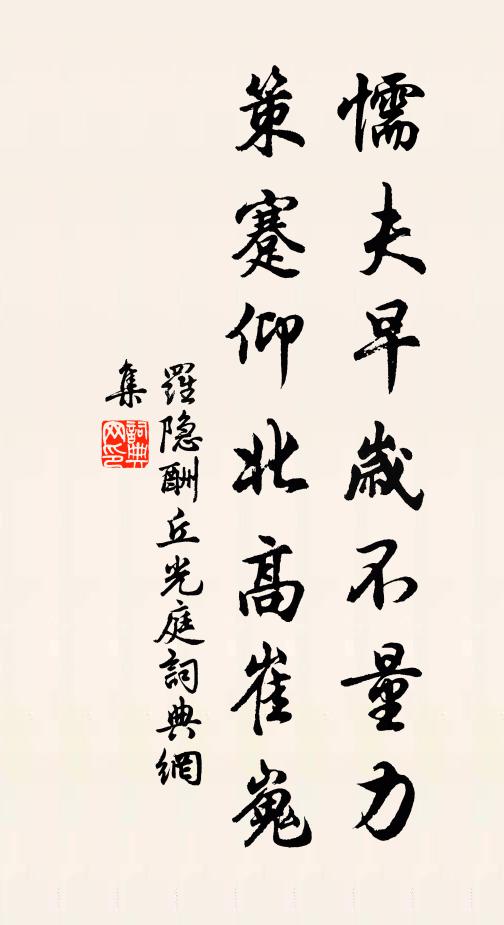 懦夫早歲不量力
策蹇仰北高崔嵬
羅隐酬丘光庭詞典網
集
詞典网印